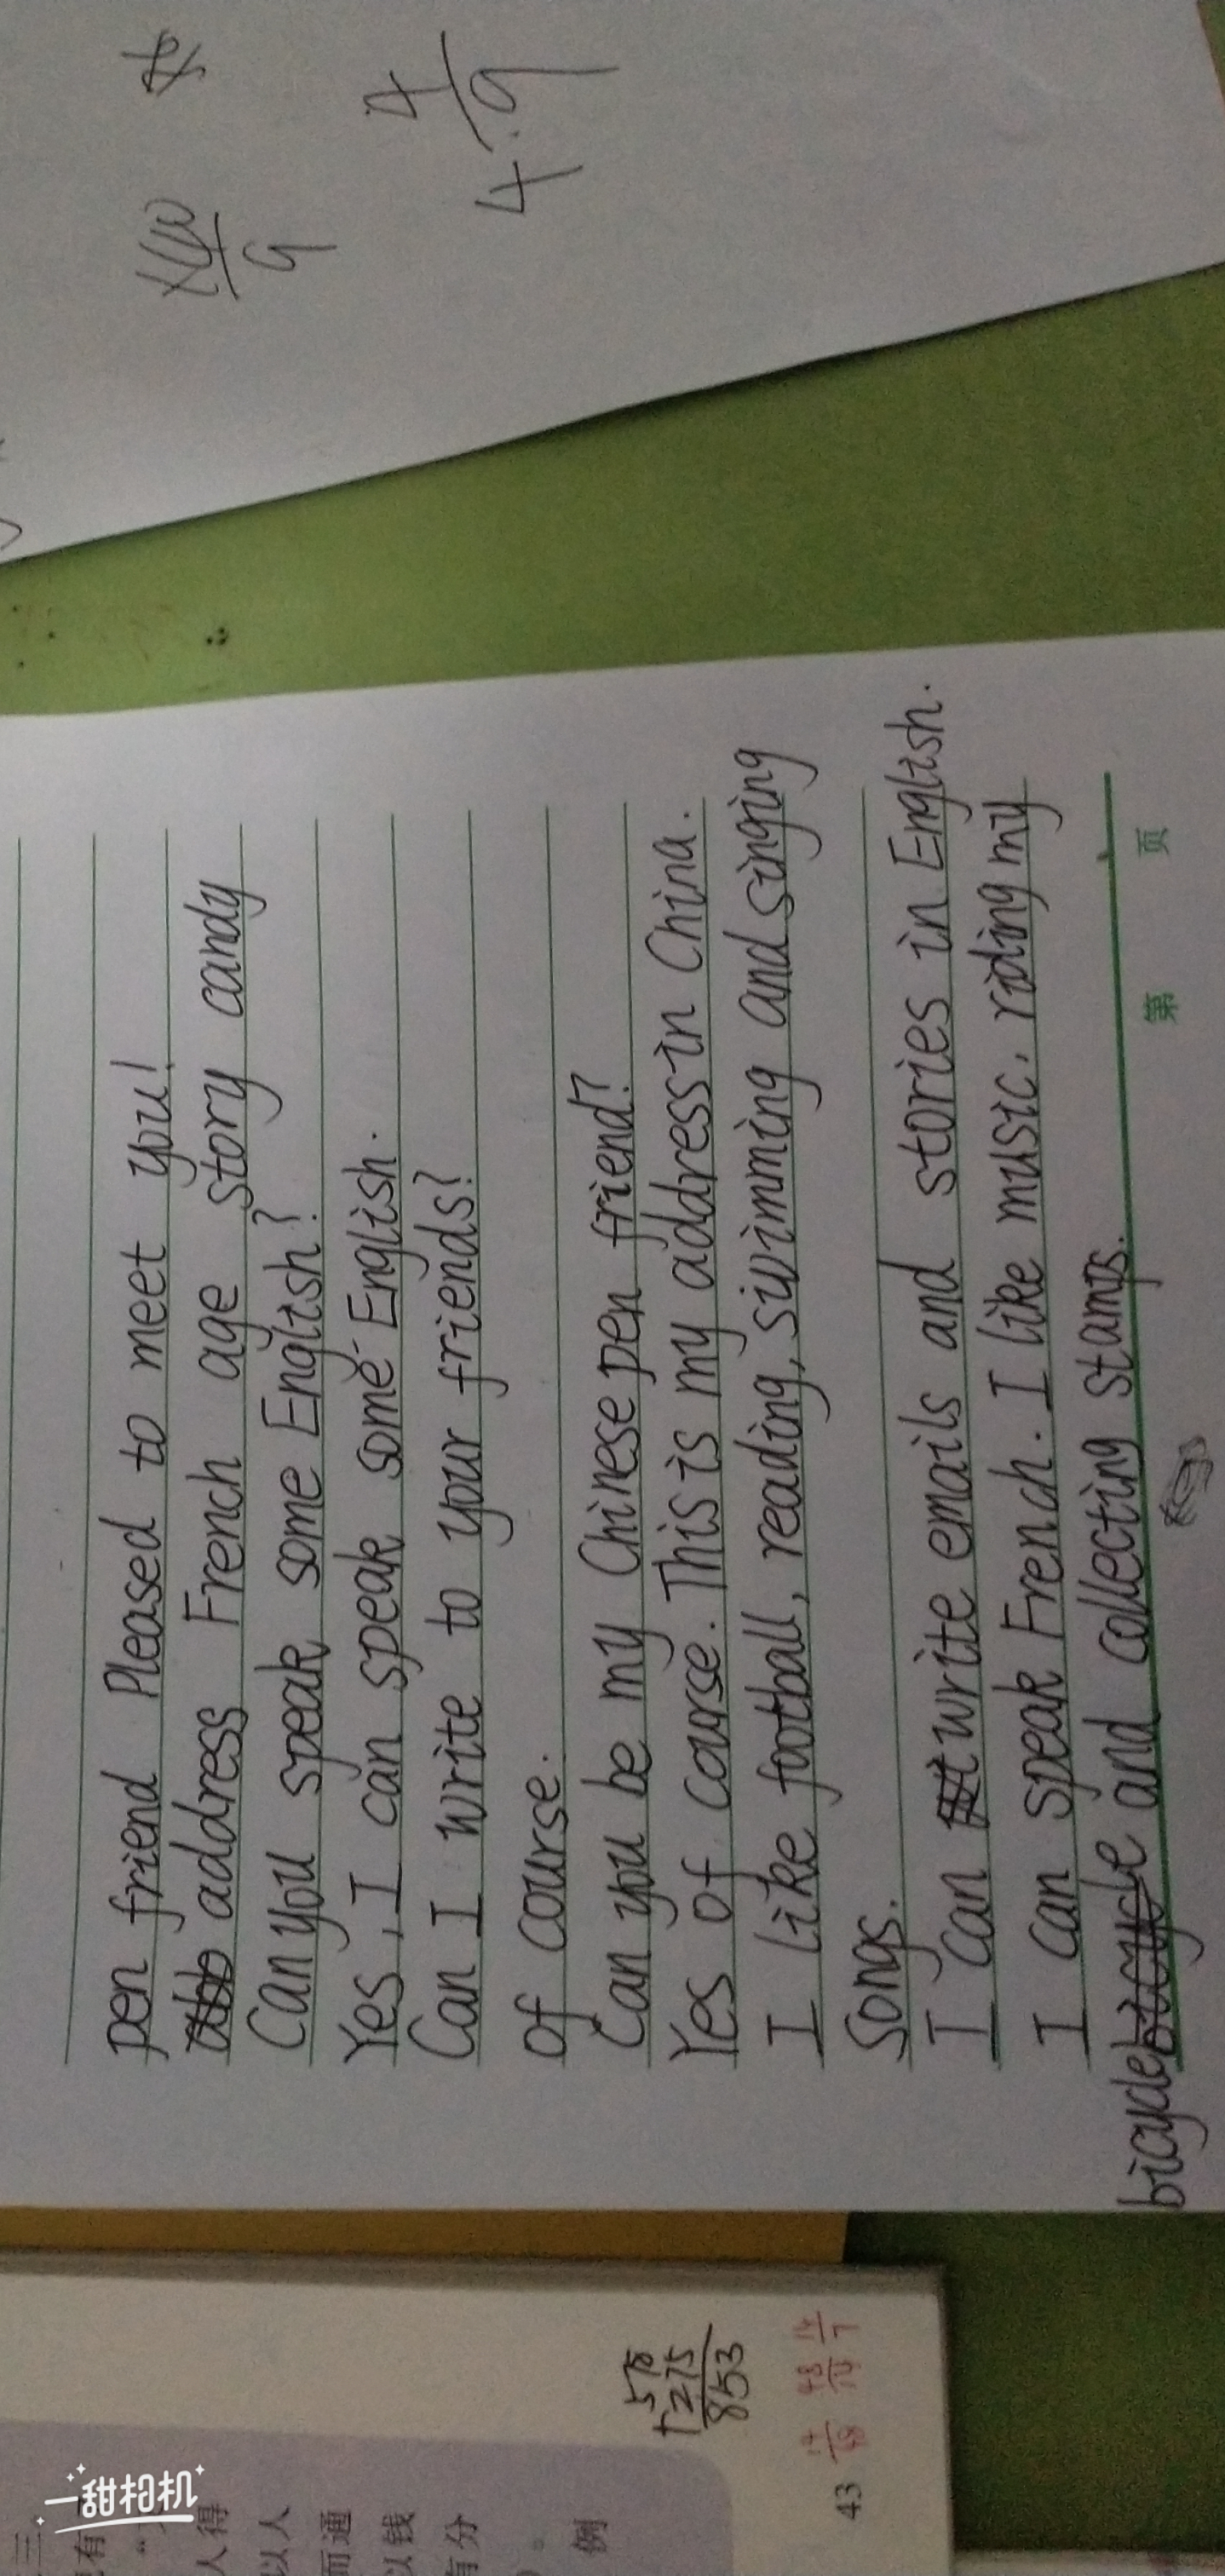 pen friend Please to meet you!
address French age story candy
Can you speak some English?
Yes, I can speak some English.
Can I write to your friends?
Of course.
Can you be my Chinese pen friend?
Yes of course. This is my address in China.
I like football, reading, swimming and singing
songs.
I can write emails and stories in English.
I can speak French. I like music, riding my
bicycle and collecting stamps.
第 页
4
4.9
9
578
+275
853
43
人得
以人
而通
以钱
有分
例
一甜相机